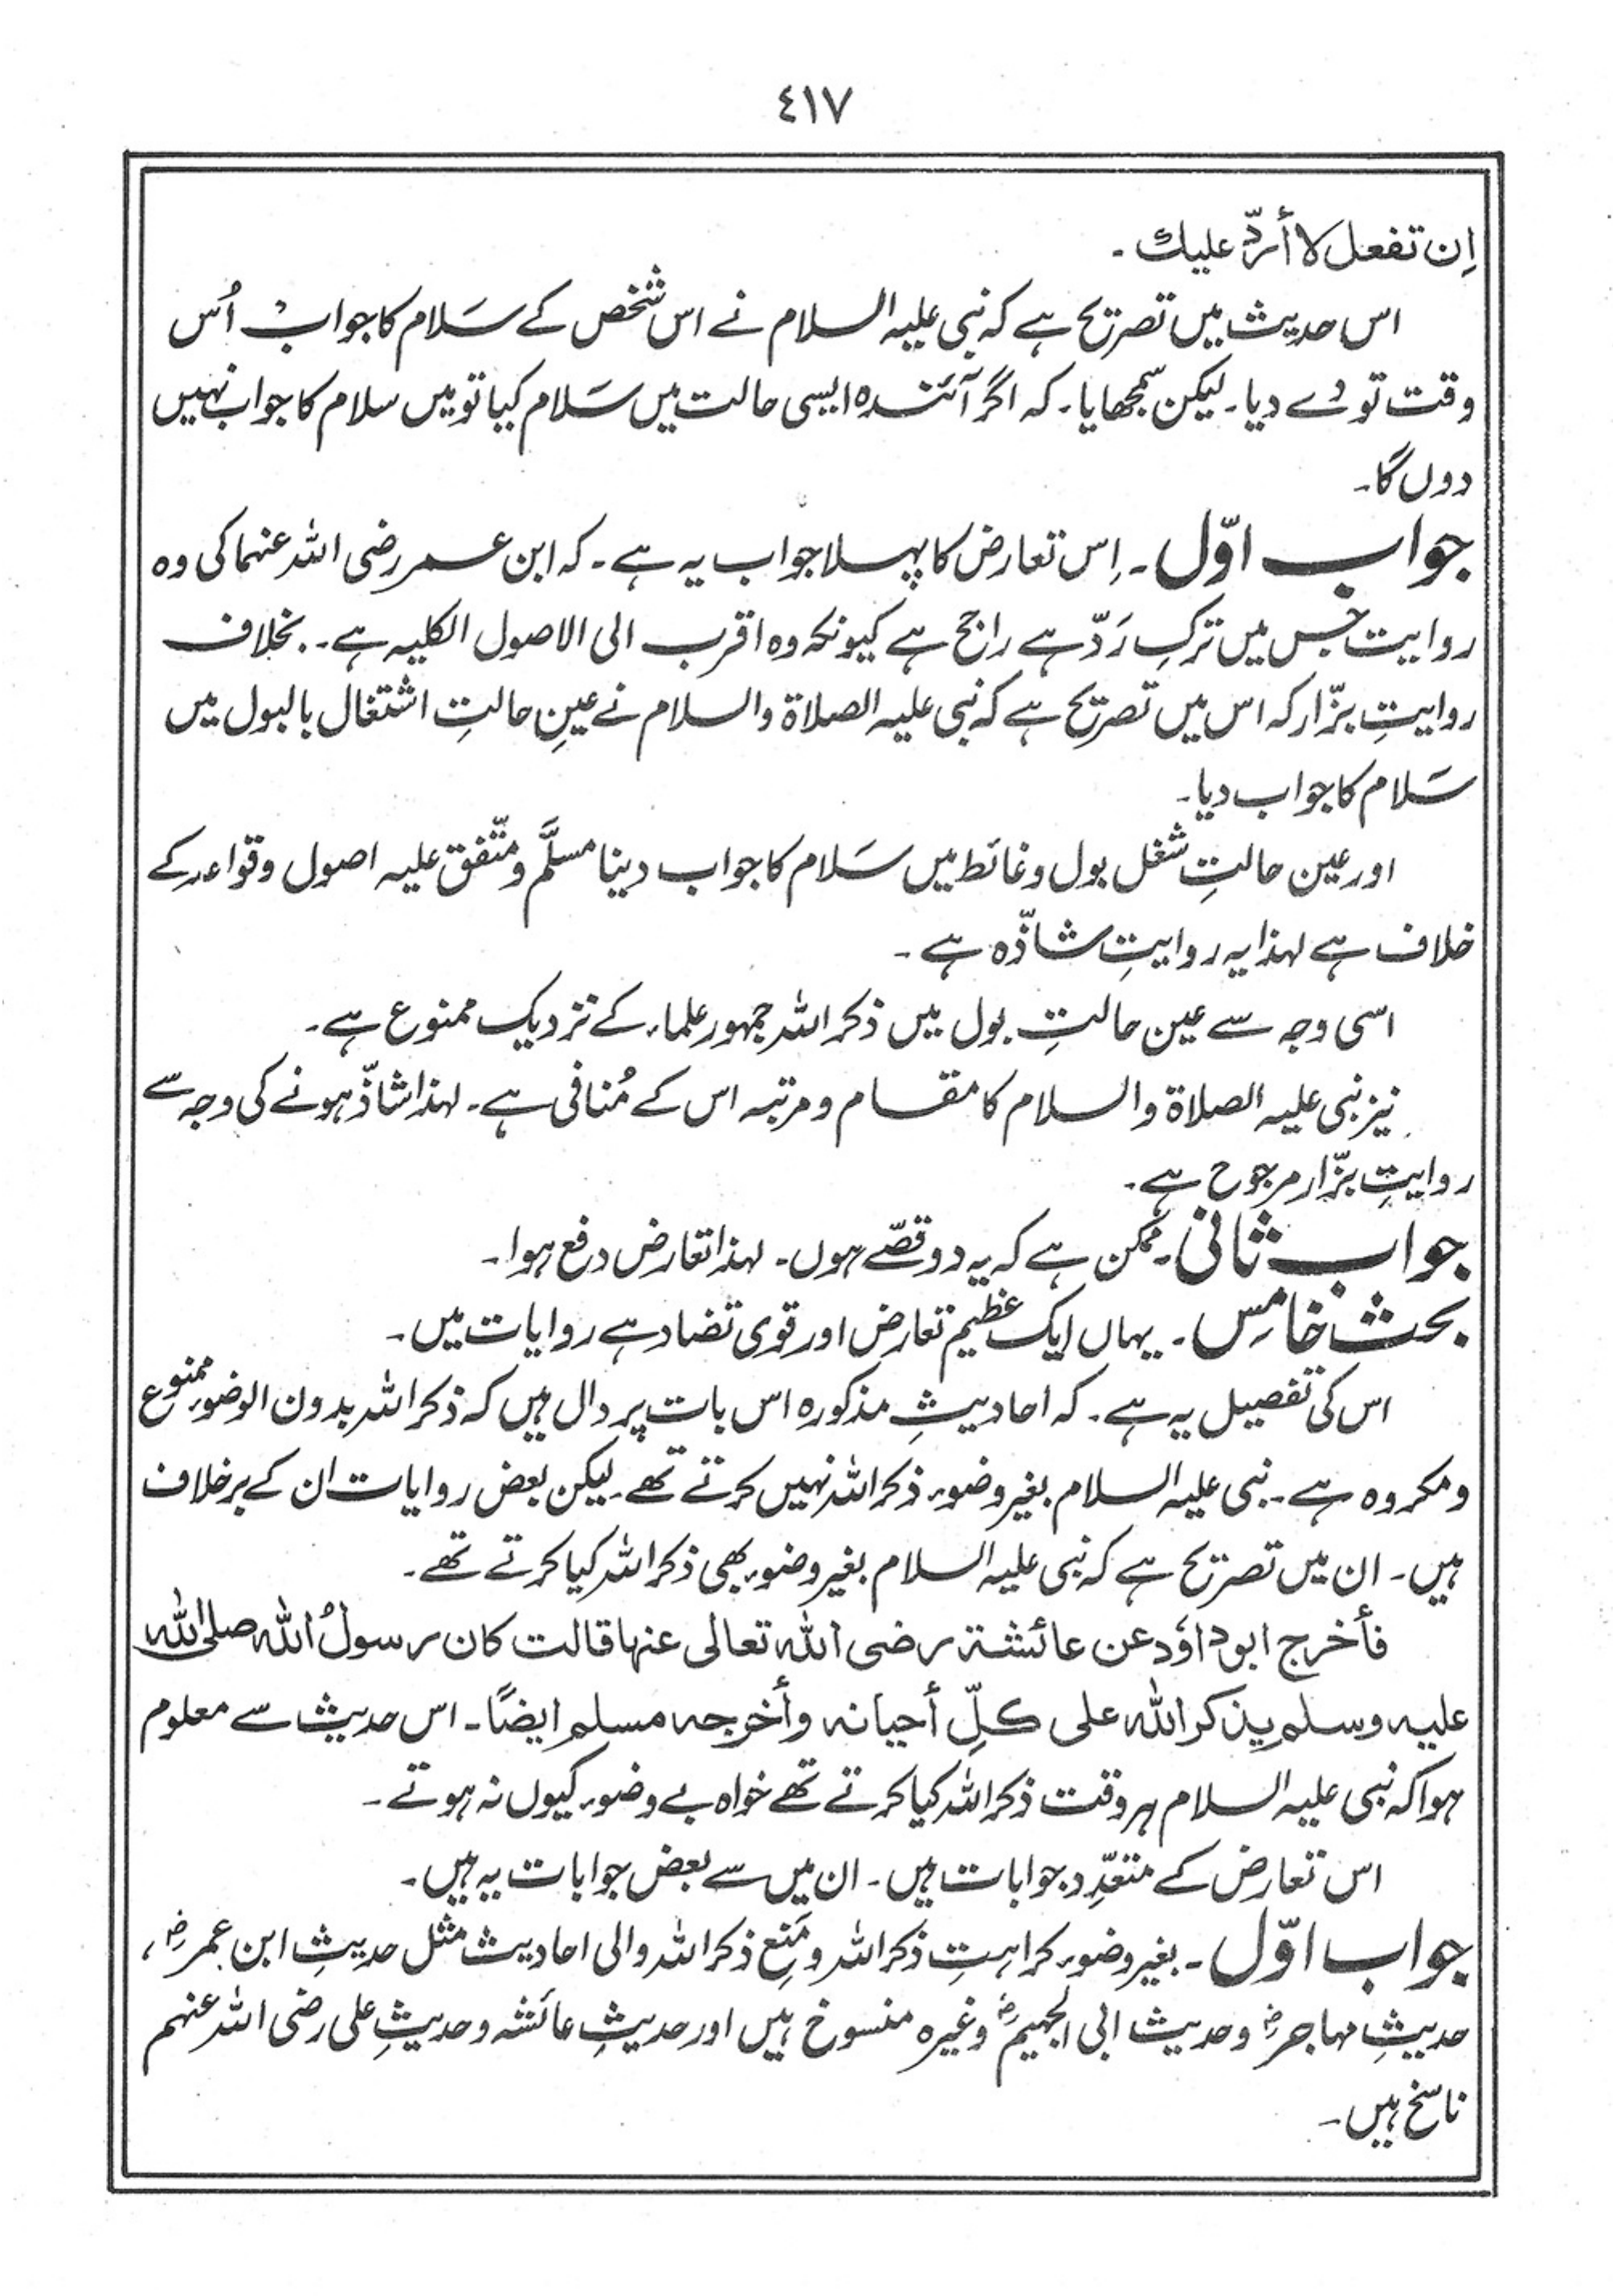 ٤١٧
اِن تفعل لا أردّ علیك ۔
اس حدیث میں تصریح ہے کہ نبی علیہ السلام نے اس شخص کے سَلام کا جواب اُس
وقت تو دے دیا۔ لیکن سمجھایا۔ کہ اگر آئندہ ایسی حالت میں سَلام کیا تو میں سلام کا جواب نہیں
دوں گا۔
جواب اوّل ۔ اِس تعارض کا پہلا جواب یہ ہے ۔ کہ ابن عمر رضی اللہ عنہما کی وہ
روایت جس میں ترکِ رَدّ ہے راجح ہے کیونکہ وہ اقرب الی الاصول الکلیہ ہے ۔ بخلاف
روایتِ بزّار کہ اس میں تصریح ہے کہ نبی علیہ الصلاۃ والسلام نے عینِ حالتِ اشتغال بالبول میں
سَلام کا جواب دیا۔
اور عین حالتِ شغل بول وغائط میں سَلام کا جواب دینا مسلَّم و متّفق علیہ اصول وقواعد کے
خلاف ہے لہذا یہ روایتِ شاذّہ ہے ۔
اسی وجہ سے عین حالتِ بول میں ذکر اللہ جمہور علماء کے نزدیک ممنوع ہے۔
نیز نبی علیہ الصلاۃ والسلام کا مقام و مرتبہ اس کے مُنافی ہے۔ لہذا شاذّ ہونے کی وجہ سے
روایتِ بزّار مرجوح ہے۔
جواب ثانی۔ ممکن ہے کہ یہ دو قصّے ہوں۔ لہذا تعارض دفع ہوا۔
بحث خامِس ۔ یہاں ایک عظیم تعارض اور قوی تضاد ہے روایات میں۔
اس کی تفصیل یہ ہے ۔ کہ احادیثِ مذکورہ اس بات پر دال ہیں کہ ذکر اللہ بدون الوضوء ممنوع
ومکروہ ہے ۔ نبی علیہ السلام بغیر وضوء ذکر اللہ نہیں کرتے تھے۔ لیکن بعض روایات ان کے برخلاف
ہیں۔ ان میں تصریح ہے کہ نبی علیہ السلام بغیر وضوء بھی ذکر اللہ کیا کرتے تھے۔
فأخرج ابوداؤد عن عائشة رضی اللہ تعالی عنہا قالت کان رسولُ اللہ صلی اللہ
علیہ وسلم یذکر اللہ علی کلّ أحیانہ وأخرجہ مسلم ایضًا۔ اس حدیث سے معلوم
ہوا کہ نبی علیہ السلام ہر وقت ذکر اللہ کیا کرتے تھے خواہ بے وضوء کیوں نہ ہوتے ۔
اس تعارض کے متعدِّد جوابات ہیں۔ ان میں سے بعض جوابات یہ ہیں۔
جواب اوّل ۔ بغیر وضوء کراہتِ ذکر اللہ و مَنعِ ذکر اللہ والی احادیث مثل حدیثِ ابن عمرؓ ،
حدیثِ مہاجرؓ و حدیث ابی الجہیمؓ وغیرہ منسوخ ہیں اور حدیثِ عائشہ و حدیثِ علی رضی اللہ عنہم
ناسخ ہیں۔